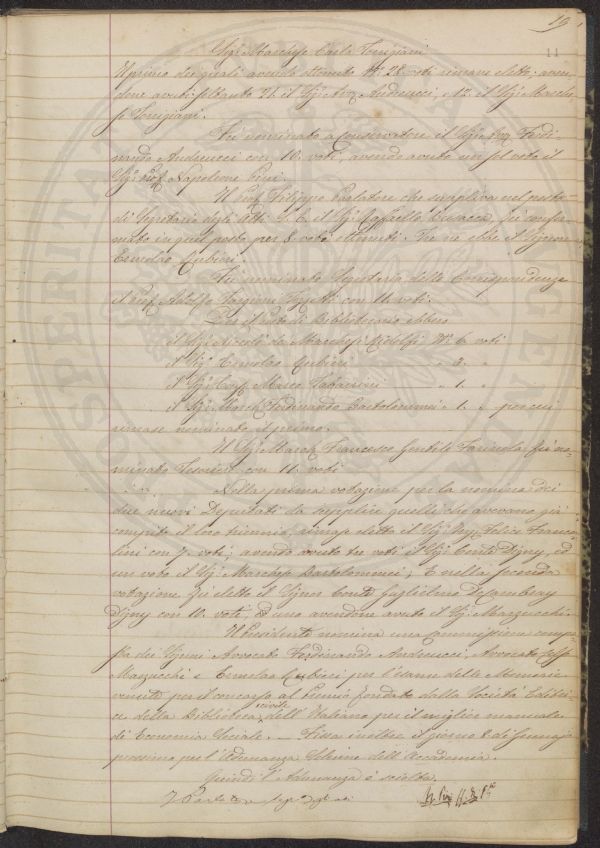 19
11
Sig.r Marchese Carlo Torrigiani
Il primo dei quali avendo ottenuto N.° 28 voti rimane eletto, aven-
done avuti soltanto 26 il Sig.r Avv. Andreucci, e 12 il Sig.r Marche-
se Torrigiani.
Fu nominato a Conservatore il Sig.r Avv. Ferdi-
nando Andreucci con 10. voti, avendo avuto un sol voto il
Sig.r Prof. Napoleone Pini.
Il Prof. Filippo Parlatore che suppliva nel posto
di Segretario degli Atti il Sig.r Raffaello fu confer-
mato in quel posto per 8 voti ottenuti. Tre ne ebbe il Signor
Ermolao Rubieri.
Fu nominato Segretario delle Corrispondenze
il Prof. Adolfo Targioni Tozzetti con 11. voti.
Per il Posto di Bibliotecario ebbero
il Sig.r Niccolò de Marchesi Ridolfi N.° 6. voti
il Sig.r Ermolao Rubieri " 3. "
il Sig.r Prof. Marco Tabarrini " 1. "
il Sig.r March. Ferdinando Bartolommei " 1. " per cui
rimase nominato il primo.
Il Sig.r March. Francesco Gentile Farinola fu no-
minato Tesoriere con 11. voti
Nella prima votazione per la nomina dei
due nuovi Deputati da supplire quelli che avevano già
compito il loro triennio, rimase eletto il Sig.r Ing. Felice France-
lini con 7. voti, avendo avuto tre voti il Sig.r Conte Digny, ed
un voto il Sig.r Marchese Bartolommei; E nella seconda
votazione fu eletto il Signor Conte Guglielmo DeCambray
Digny con 10. voti, ed uno avendone avuto il Sig.r Marzucchi.
Il Presidente nomina una commissione compo-
sta dei Signori Avvocato Ferdinando Andreucci, Avvocato
Marzucchi e Ermolao Rubieri per l'esame delle Memorie
venute per il concorso al Premio fondato dalla Società Editri-
ce della Biblioteca civile dell'Italiano per il miglior manuale
di Economia Sociale. — Fissa inoltre il giorno 8 di Gennajo
prossimo per l'Adunanza Solenne dell'Accademia.
Quindi l'Adunanza è sciolta.